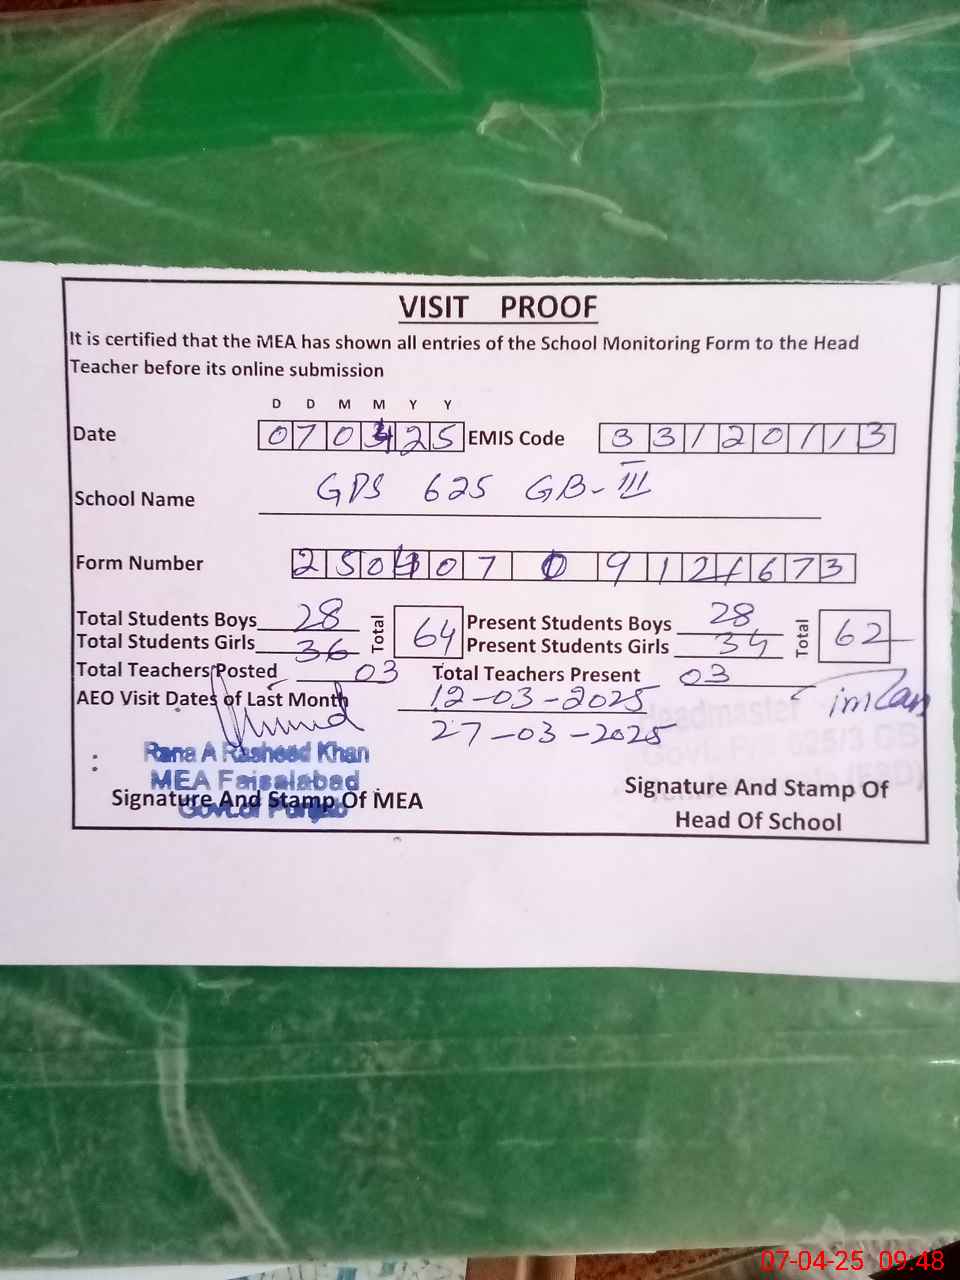 VISIT PROOF
It is certified that the MEA has shown all entries of the School Monitoring Form to the Head
Teacher before its online submission
D D M M Y Y
Date 070425 EMIS Code 33120113
School Name GPS 625 GB-III
Form Number 250407 0912 673
Total Students Boys 28 Total 64 Present Students Boys 28 Total 62
Total Students Girls 36 Present Students Girls 34
Total Teachers Posted 03 Total Teachers Present 03
AEO Visit Dates of Last Month 12-03-2025
27-03-2025
imran
Rana A Rasheed Khan
MEA Faisalabad
Govt.of Punjab
Signature And Stamp Of MEA
Headmaster
Signature And Stamp Of
Head Of School
07-04-25 09:48